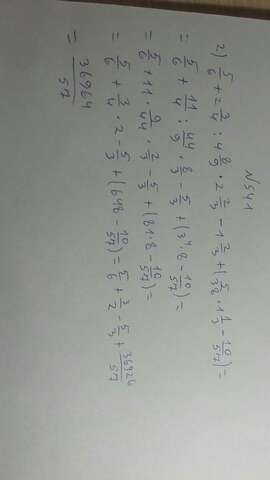 N541
2) 5/6 + 2 3/4 : 4 8/9 · 2 2/3 - 1 2/3 + ( 5/32 · 1 1/3 - 10/57) =
= 5/6 + 11/4 : 44/9 · 8/3 - 5/3 + (3⁴ · 8 - 10/57) =
= 5/6 + 11 · 9/44 · 2/3 - 5/3 + (81 · 8 - 10/57) =
= 5/6 + 3/4 · 2 - 5/3 + (648 - 10/57) = 5/6 + 3/2 - 5/3 + 36926/57
= 36964/57